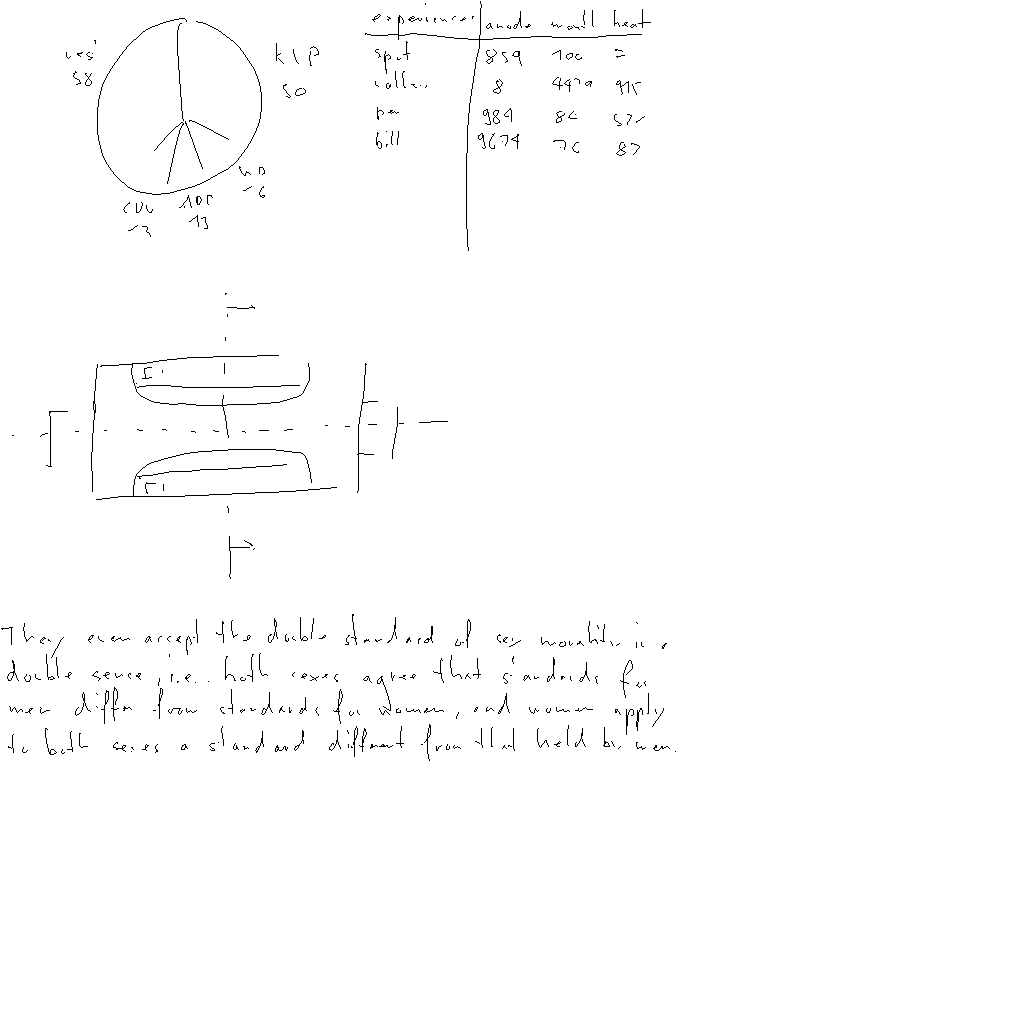 KIP
58
50
13
experience anode moll heat
spot 859
8
pen 984
bill 9674 76 87
They even accept the double standard of sex morality in a
double sense, i.e.. both sexes agree that standards for
men differ from standards for women, and women apply
to both sexes a standard different from that held by men.